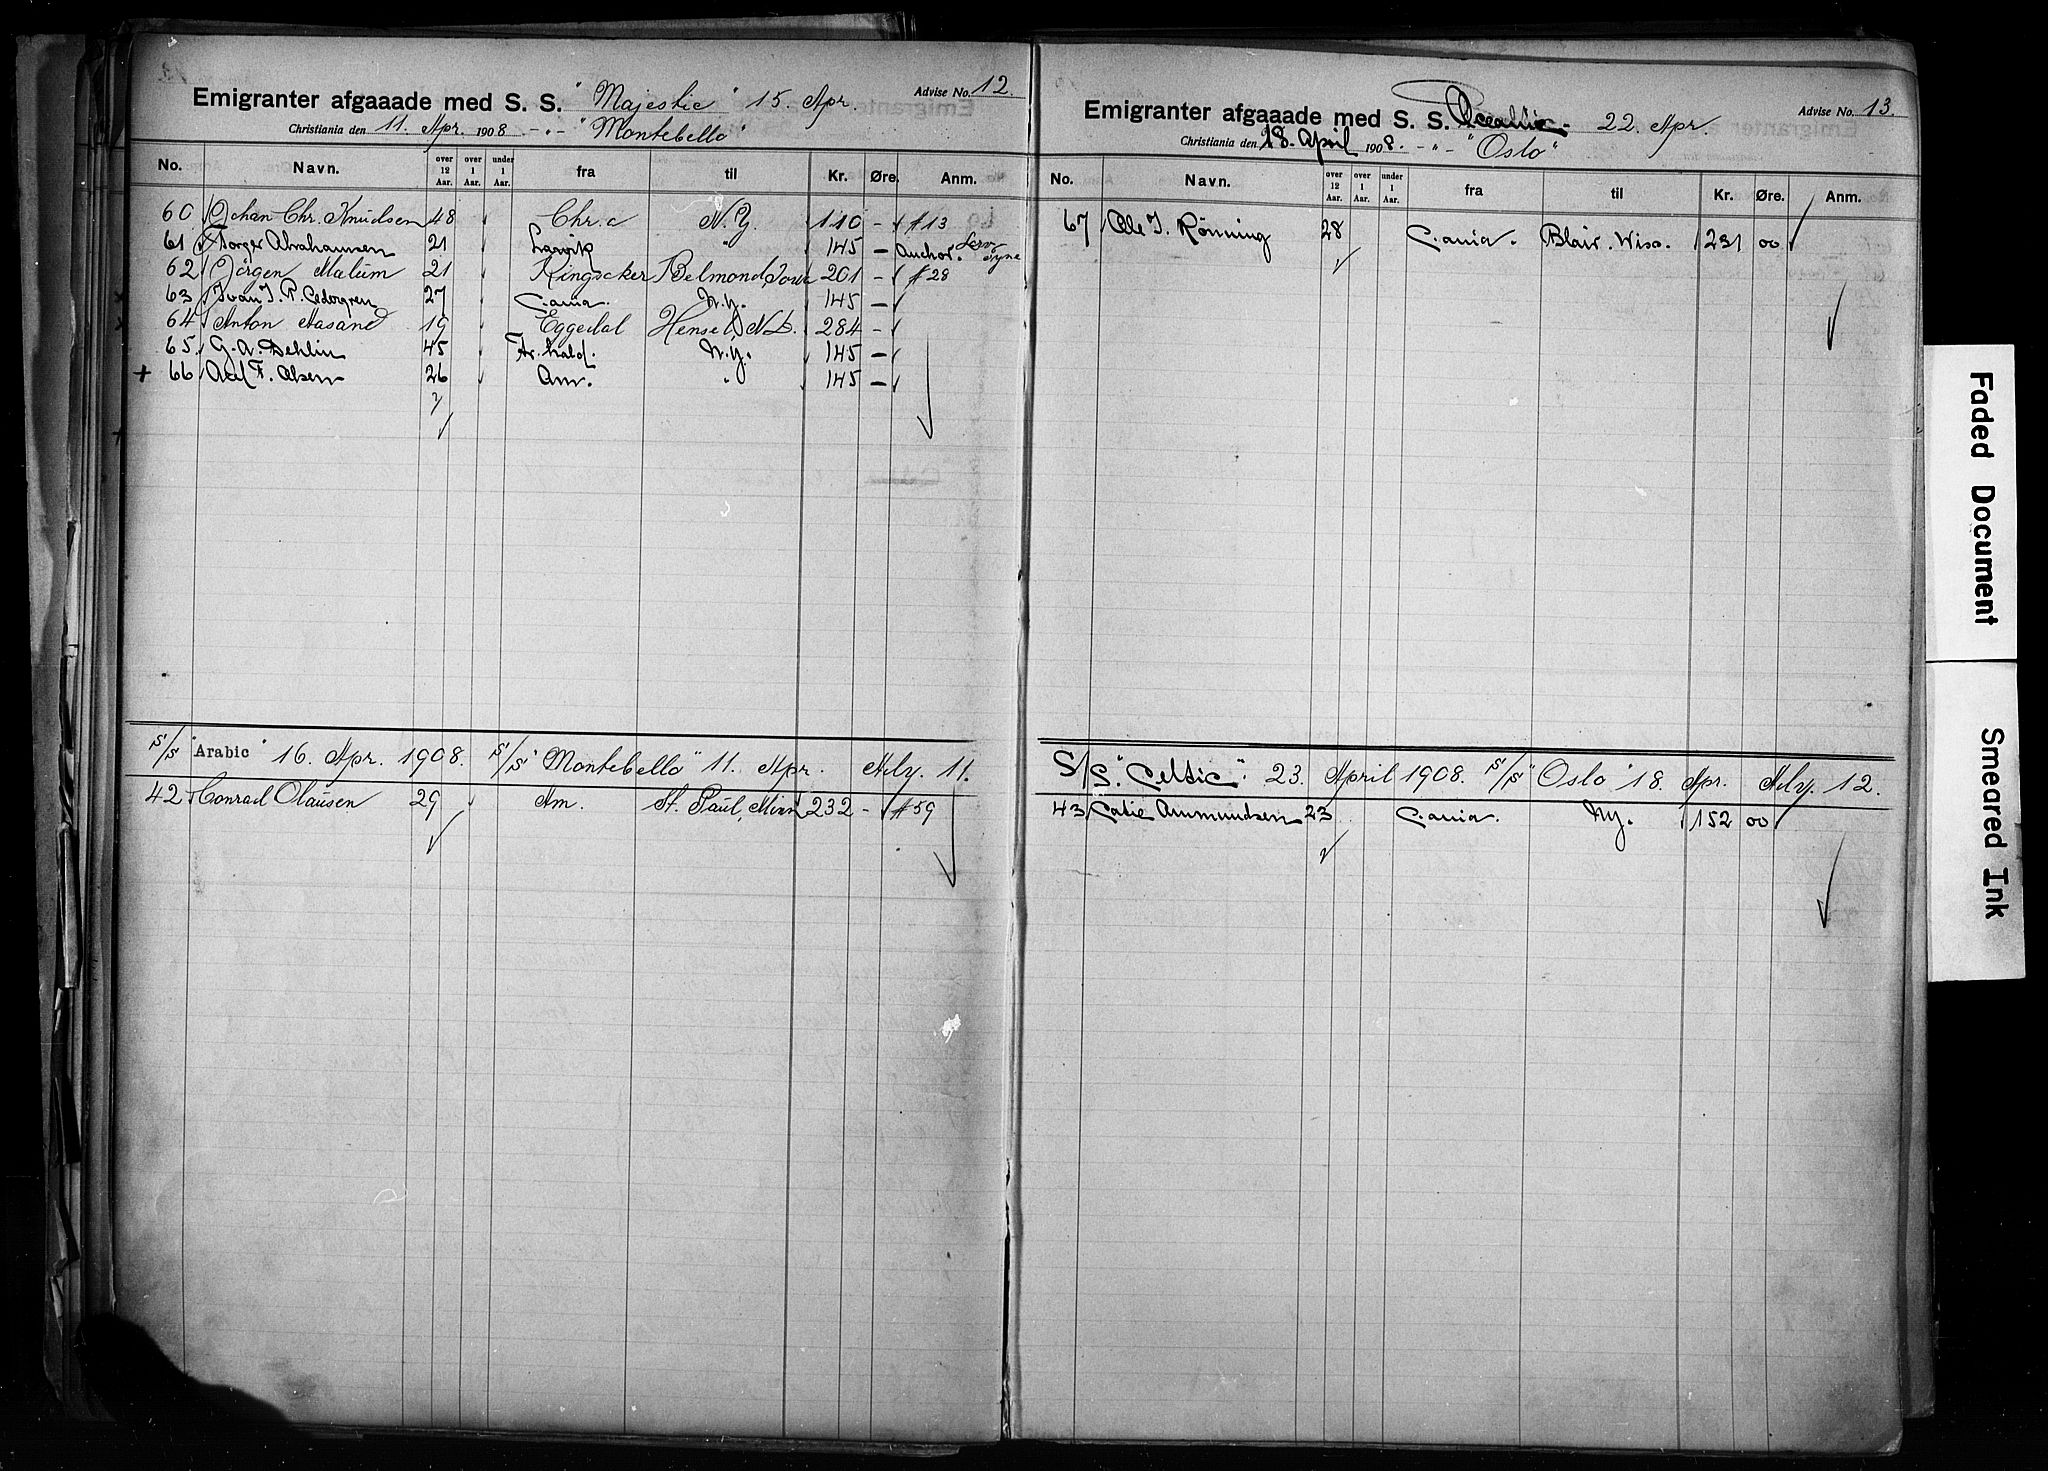 Emigranter afgaaade med S. S. "Majestic" 15. Apr. Advise No. 12.
Christiania den 11. Apr. 1908 -"- "Montebello"
No. Navn. over 12 Aar. over 1 Aar. under 1 Aar. fra til Kr. Øre. Anm.
60 Johan Chr. Knudsen 48 Chr.a N.Y. 110 - # 13
61 Thorger Abrahamsen 21 Larvik " 145 - Anchor.
62 Jörgen Malum 21 Ringsaker Belmond Iowa 201 - # 28
63 Ivan J. P. Cedergren 27 C.ania. N.Y. 145 -
64 Anton Aasand 19 Eggedal Hensel, N.D. 284 -
65. G. A. Dehlin 45 Fr.hald. N.Y. 145 -
+ 66 Axel F. Olsen 26 Am. " 145 -
7
S/S "Arabic" 16. Apr. 1908. S/S "Montebello" 11. Apr. Adv. 11.
42 Conrad Olausen 29 Am. St. Paul, Minn 232 - # 59
Emigranter afgaaade med S. S. Oceanic. 22. Apr. Advise No. 13.
Christiania den 18. April 1908. -"- "Oslo"
No. Navn. over 12 Aar. over 1 Aar. under 1 Aar. fra til Kr. Øre. Anm.
67 Ole J. Rønning 28 C.ania. Blair. Wisc. 231 00
S/S. "Celtic". 23. April 1908. S/S "Oslo" 18. Apr. Adv. 12.
43 Catie Ammundsen 23 C.ania. NY. 152 00
Faded Document
Smeared Ink